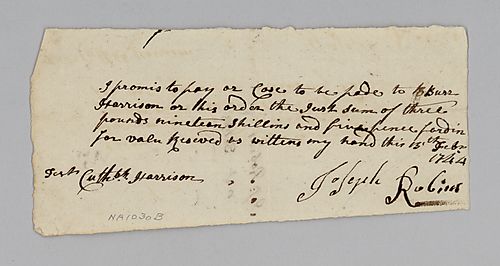 I promis to pay or Case to be pade to Burr
Harrison or his order the Just sum of three
pounds nineteen Shillins and five pence fardin
for valu Reseved as wittnes my hand this 15th Febr
1744
Test Cuthbt Harrison
Joseph Robins
NA1030B